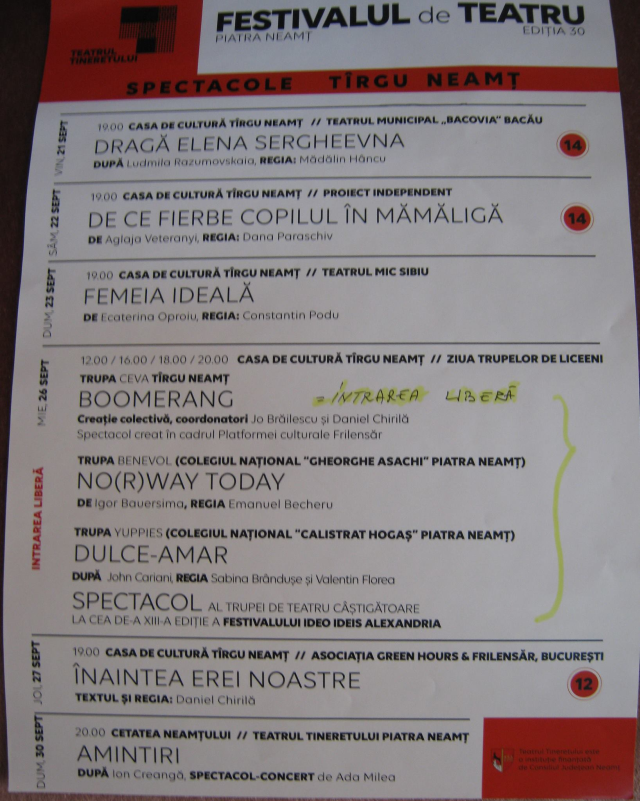 TEATRUL
TINERETULUI
FESTIVALUL de TEATRU
PIATRA NEAMȚ
EDIȚIA 30
SPECTACOLE TÎRGU NEAMȚ
VIN, 21 SEPT
19.00 CASA DE CULTURĂ TÎRGU NEAMȚ // TEATRUL MUNICIPAL „BACOVIA” BACĂU
DRAGĂ ELENA SERGHEEVNA
14
DUPĂ Ludmila Razumovskaia, REGIA: Mădălin Hâncu
SÂM, 22 SEPT
19.00 CASA DE CULTURĂ TÎRGU NEAMȚ // PROIECT INDEPENDENT
DE CE FIERBE COPILUL ÎN MĂMĂLIGĂ
14
DE Aglaja Veteranyi, REGIA: Dana Paraschiv
DUM, 23 SEPT
19.00 CASA DE CULTURĂ TÎRGU NEAMȚ // TEATRUL MIC SIBIU
FEMEIA IDEALĂ
DE Ecaterina Oproiu, REGIA: Constantin Podu
MIE, 26 SEPT
INTRAREA LIBERĂ
12.00 / 16.00 / 18.00 / 20.00 CASA DE CULTURĂ TÎRGU NEAMȚ // ZIUA TRUPELOR DE LICEENI
TRUPA CEVA TÎRGU NEAMȚ
BOOMERANG
= ÎNTRAREA LIBERĂ
Creație colectivă, coordonatori Jo Brăilescu și Daniel Chirilă
Spectacol creat în cadrul Platformei culturale Frilensăr
TRUPA BENEVOL (COLEGIUL NAȚIONAL "GHEORGHE ASACHI" PIATRA NEAMȚ)
NO(R)WAY TODAY
DE Igor Bauersima, REGIA Emanuel Becheru
TRUPA YUPPIES (COLEGIUL NAȚIONAL "CALISTRAT HOGAȘ" PIATRA NEAMȚ)
DULCE-AMAR
DUPĂ John Cariani, REGIA Sabina Brândușe și Valentin Florea
SPECTACOL AL TRUPEI DE TEATRU CÂȘTIGĂTOARE
LA CEA DE-A XIII-A EDIȚIE A FESTIVALULUI IDEO IDEIS ALEXANDRIA
JOI, 27 SEPT
19.00 CASA DE CULTURĂ TÎRGU NEAMȚ // ASOCIAȚIA GREEN HOURS & FRILENSĂR, BUCUREȘTI
ÎNAINTEA EREI NOASTRE
12
TEXTUL ȘI REGIA: Daniel Chirilă
DUM, 30 SEPT
20.00 CETATEA NEAMȚULUI // TEATRUL TINERETULUI PIATRA NEAMȚ
AMINTIRI
DUPĂ Ion Creangă, SPECTACOL-CONCERT de Ada Milea
Teatrul Tineretului este
o instituție finanțată
de Consiliul Județean Neamț